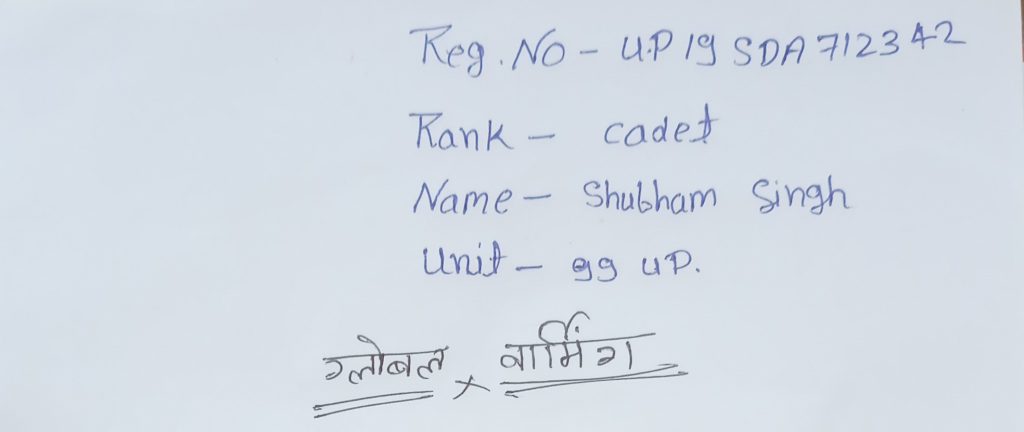 Reg. No - U.P 19 SDA 712342
Rank - cadet
Name - Shubham Singh
Unit - 99 UP.
ग्लोबल वार्मिंग